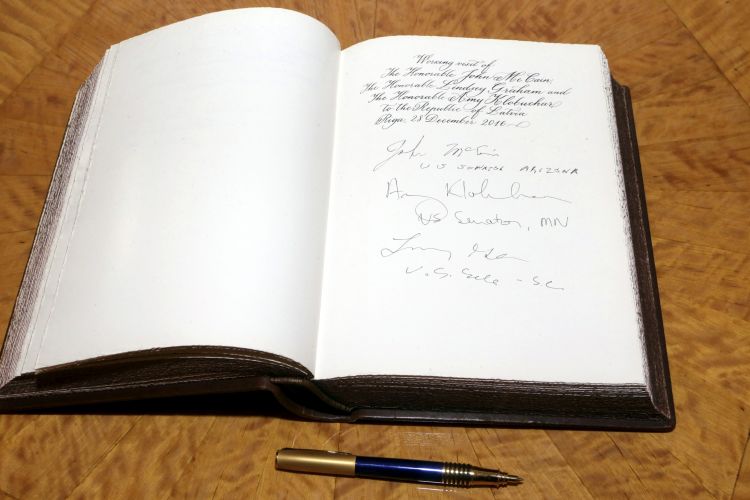 Working visit of
The Honorable John McCain,
The Honorable Lindsey Graham and
The Honorable Amy Klobuchar
to the Republic of Latvia
Riga 28 December 2016
John McCain
US SENATOR ARIZONA
Amy Klobuchar
US Senator, MN
U.S. - SC